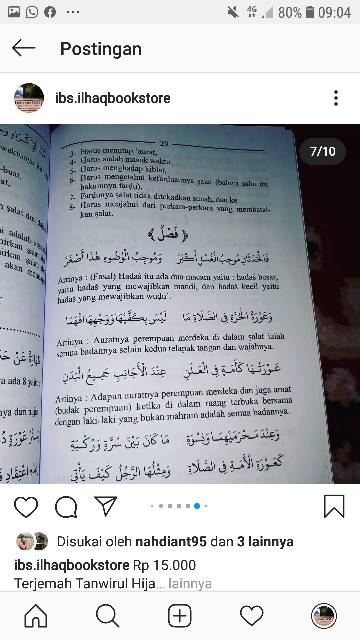 4G 80% 09:04
Postingan
ibs.ilhaqbookstore
7/10
29
3- Harus menutup 'aurat,
4- Harus sudah masuk waktu,
5- Harus menghadap kiblat,
6- Harus mengetahui kefardluannya salat (bahwa salat itu
hukumnya fardu),
7- Fardunya salat tidak ditekadkan sunah, dan ke
8- Harus menjauhi dari perkara-perkara yang membatal-
kan salat.
﴿ فَصْلٌ ﴾
فَالْحَدَثَانِ مُوجِبُ الْغُسْلِ أَكْبَرُ وَمُوجِبُ الْوُضُوءِ هٰذَا أَصْغَرُ
Artinya : (Fasal) Hadas itu ada dua macam yaitu : hadas besar,
yaitu hadas yang mewajibkan mandi, dan hadas kecil yaitu
hadas yang mewajibkan wudu'.
وَعَوْرَةُ الْحُرَّةِ فِى الصَّلَاةِ مَا لَيْسَ بِكَفَّيْهَا وَوَجْهِهَا افْهَمَا
Artinya : Auratnya perempuan merdeka di dalam salat ialah
semua badannya selain kedua telapak tangan dan wajahnya.
عَوْرَتُهَا كَأَمَةٍ فِى الْعَلَنِ عِنْدَ الْأَجَانِبِ جَمِيعُ الْبَدَنِ
Artinya : Adapun auratnya perempuan merdeka dan juga amat
(budak perempuan) ketika di dalam ruang terbuka bersama
dengan laki-laki yang bukan mahram adalah semua badannya.
وَعِنْدَ مَحْرَمِهَا وَنِسْوَةٍ مَا كَانَ بَيْنَ سُرَّةٍ وَرُكْبَةٍ
كَعَوْرَةِ الْأَمَةِ فِى الصَّلَاةِ وَمِثْلُهَا الرَّجُلُ كَيْفَ يَأْتِى
Disukai oleh nahdiant95 dan 3 lainnya
ibs.ilhaqbookstore Rp 15.000
Terjemah Tanwirul Hija... lainnya